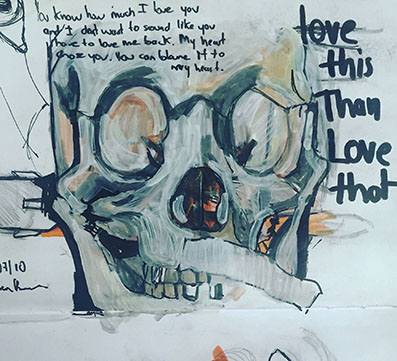 You know how much I love you
and I don't want to sound like you
have to love me back. My heart
chose you. You can blame it to
my heart.
love
this
Than
Love
that
07/10